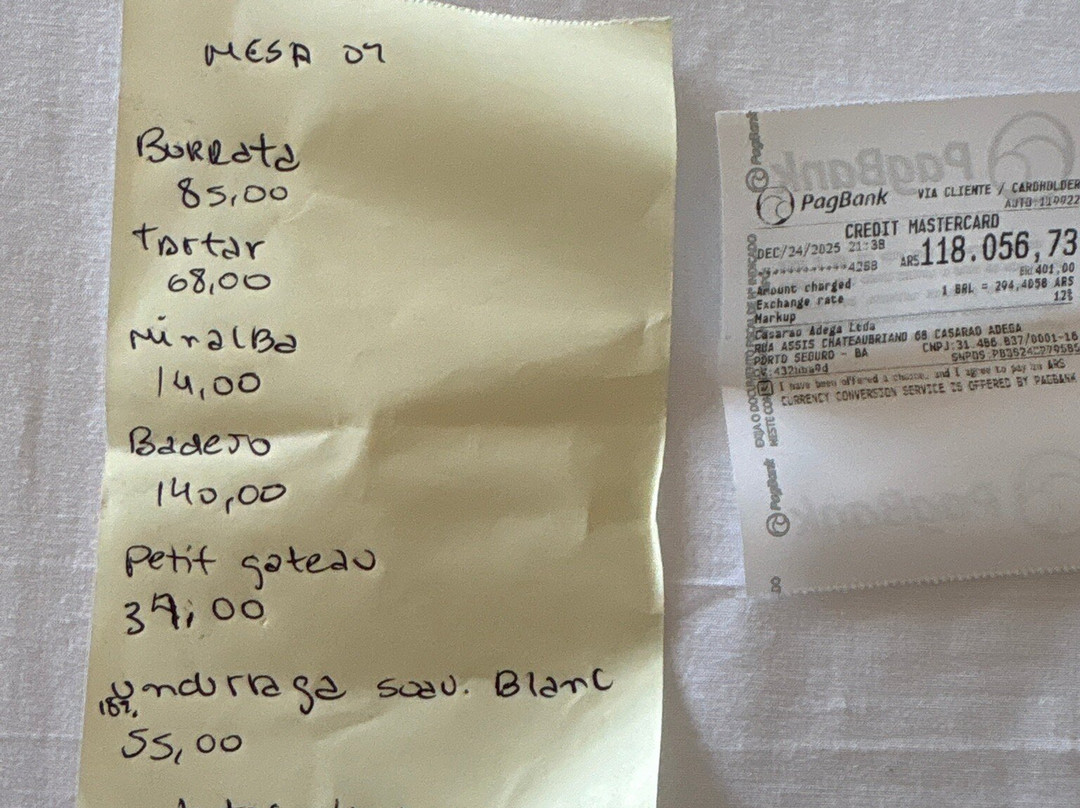 MESA 07
BURRata
85,00
tartar
68,00
MinalBa
14,00
Badejo
140,00
Petit gateau
39,00
undurraga sauv. Blanc
187,
55,00
PagBank
VIA CLIENTE / CARDHOLDER
AUTO:119922
CREDIT MASTERCARD
DEC/24/2025 21:38
ARS118.056,73
4268
Amount charged BRL401,00
Exchange rate 1 BRL = 294,4058 ARS
Markup 12%
Casarao Adega Ltda
RUA ASSIS CHATEAUBRIAND 68 CASARAO ADEGA
PORTO SEGURO - BA CNPJ:31.486.837/0001-16
I have been offered a choice, and I agree to pay in ARS
CURRENCY CONVERSION SERVICE IS OFFERED BY PAGBANK
PagBank
PagBank
PagBank